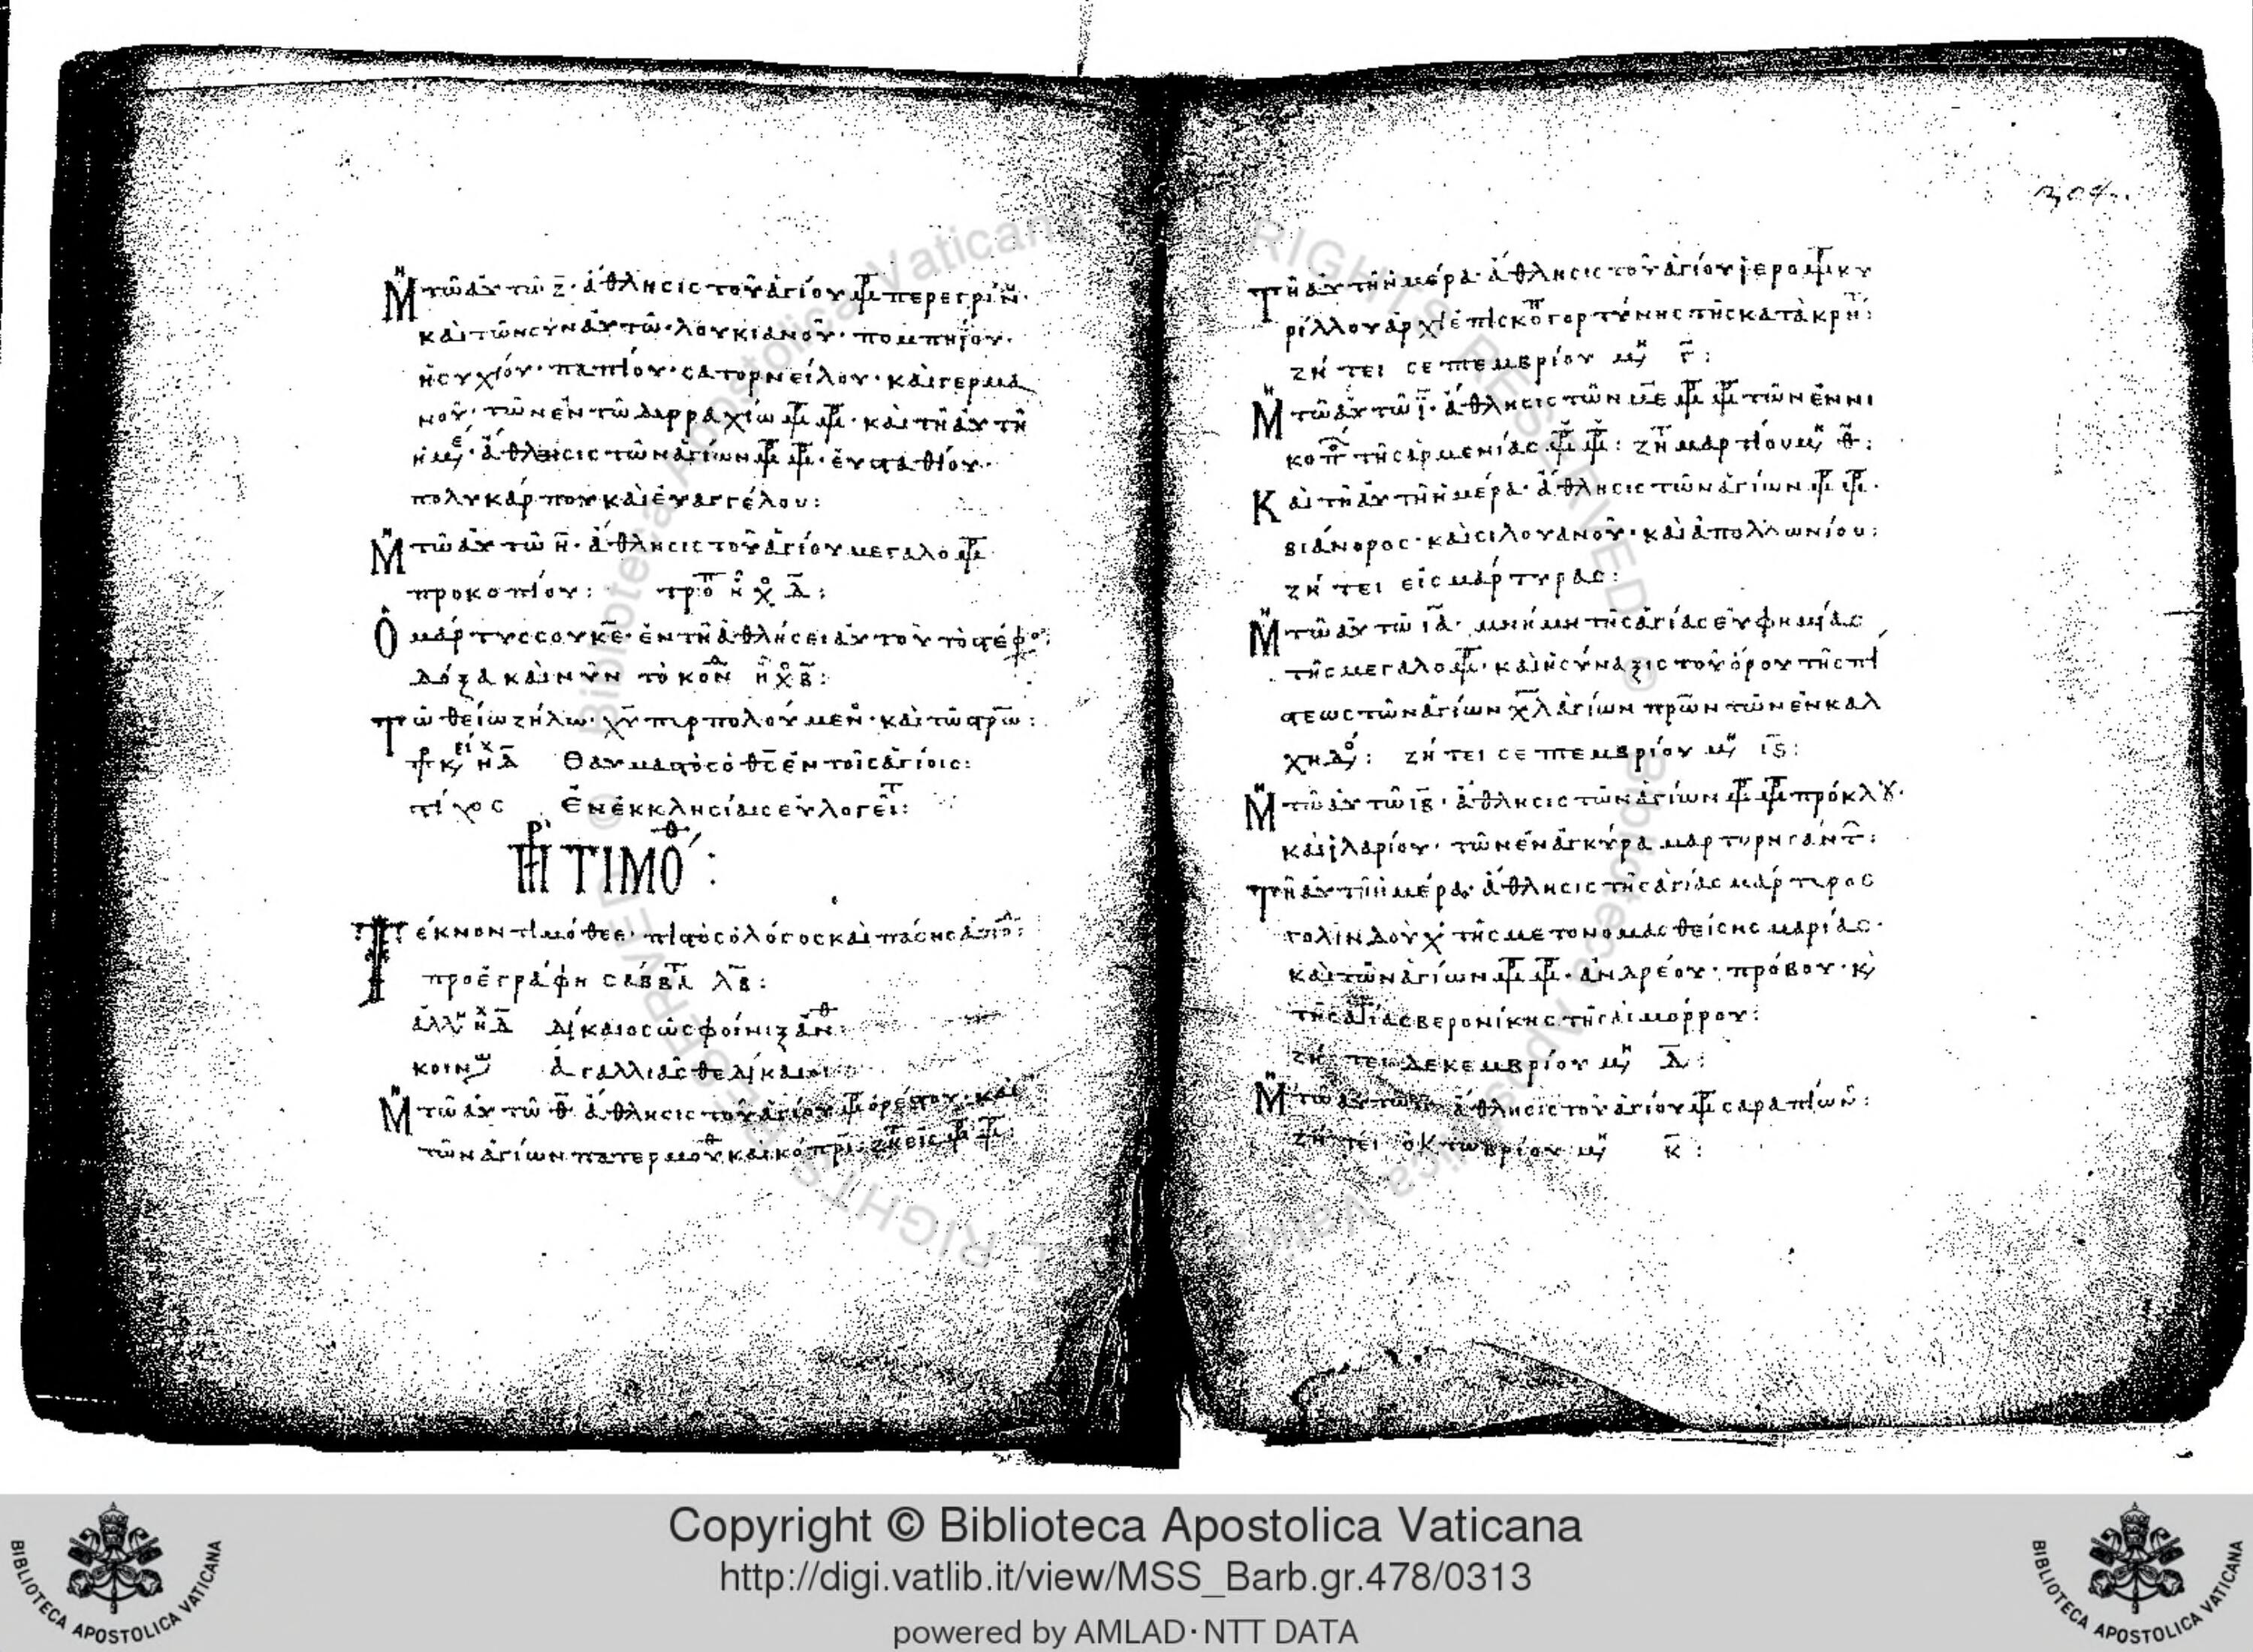 Μη τῶ αὐτῶ ζ · ἄθλησις τοῦ ἁγίου μρ περεγρίν
καὶ τῶν σὺν αὐτῶ · λουκιανοῦ · πομπηΐου ·
ἡσυχίου · παπίου · σατορνείλου · καὶ γερμα
νοῦ · τῶν ἐν τῶ δυρραχίω μρ μρ · καὶ τῆ αὐτῆ
ἡμε · ἄθλησις τῶν ἁγίων μρ μρ · εὐσταθίου ·
πολυκάρπου καὶ εὐαγγέλου :
Μη τῶ αὐτῶ η · ἄθλησις τοῦ ἁγίου μεγαλομρ
προκοπίου : τροπ ηχ δ :
Ο μάρτυς σου κε · ἐν τῆ ἀθλήσει αὐτοῦ τὸ στέφο
δόξα καὶ νῦν τὸ κον ηχ β :
Τῶ θείω ζήλω · χυ πυρπολούμεν · καὶ τῶ στρω :
ηχ δ Θαυμαστὸς ὁ θς ἐν τοῖς ἁγίοις :
στίχος Ἐν ἐκκλησίαις εὐλογεῖτ :
ΠΡ ΤΙΜΟΘ :
Τέκνον τιμόθεε · πιστὸς ὁ λόγος καὶ πάσης ἀπο :
προεγράφη σαββατ λβ :
ἀλλη ηχ δ Δίκαιος ὡς φοίνιξ ανθ :
κοιν Ἀγαλλιᾶσθε δίκαιοι
Μη τῶ αὐτῶ θ · ἄθλησις τοῦ ἁγίου μρ ὀρέστου · καὶ
τῶν ἁγίων πατερμουθ καὶ κόπρι · ζητ εἰς μρ μρ :
304
Τῆ αὐτῆ ἡμέρα · ἄθλησις τοῦ ἁγίου ἱερομρ κυ
ρίλλου ἀρχιεπισκοπ γορτύνης τῆς κατὰ κρητ :
ζήτει σεπτεμβρίου μη Γ :
Μη τῶ αὐτῶ ι · ἄθλησις τῶν με μρ μρ τῶν ἐν νι
κοπ τῆς ἀρμενίας μρ μρ : ζητ μαρτίου μη θ :
Καὶ τῆ αὐτῆ ἡμέρα · ἄθλησις τῶν ἁγίων μρ μρ ·
βιάνορος · καὶ σιλουανοῦ · καὶ ἀπολλωνίου :
ζήτει εἰς μάρτυρας :
Μη τῶ αὐτῶ ια · μνήμη τῆς ἁγίας εὐφημίας
τῆς μεγαλομρ · καὶ ἡ σύναξις τοῦ ὅρου τῆς πί
στεως τῶν ἁγίων χλ ἁγίων πρων τῶν ἐν καλ
χηδο : ζήτει σεπτεμβρίου μη ις :
Μη τῶ αὐτῶ ιβ · ἄθλησις τῶν ἁγίων μρ μρ πρόκλου ·
καὶ ἱλαρίου · τῶν ἐν ἀγκύρα μαρτυρησάντ :
Τῆ αὐτῆ ἡμέρα · ἄθλησις τῆς ἁγίας μάρτυρος
γολινδοὺχ τῆς μετονομασθείσης μαρίας ·
καὶ τῶν ἁγίων μρ μρ · ἀνδρέου · πρόβου · κ
τῆς ἁγίας βερονίκης τῆς αἱμορρου :
ζήτει δεκεμβρίου μη Δ :
Μη τῶ αὐτῶ ἄθλησις τοῦ ἁγίου μρ σαραπίων :
ζήτει ὀκτωβρίου μη κ :
Copyright © Biblioteca Apostolica Vaticana
http://digi.vatlib.it/view/MSS_Barb.gr.478/0313
powered by AMLAD·NTT DATA
BIBLIOTECA APOSTOLICA VATICANA
BIBLIOTECA APOSTOLICA VATICANA